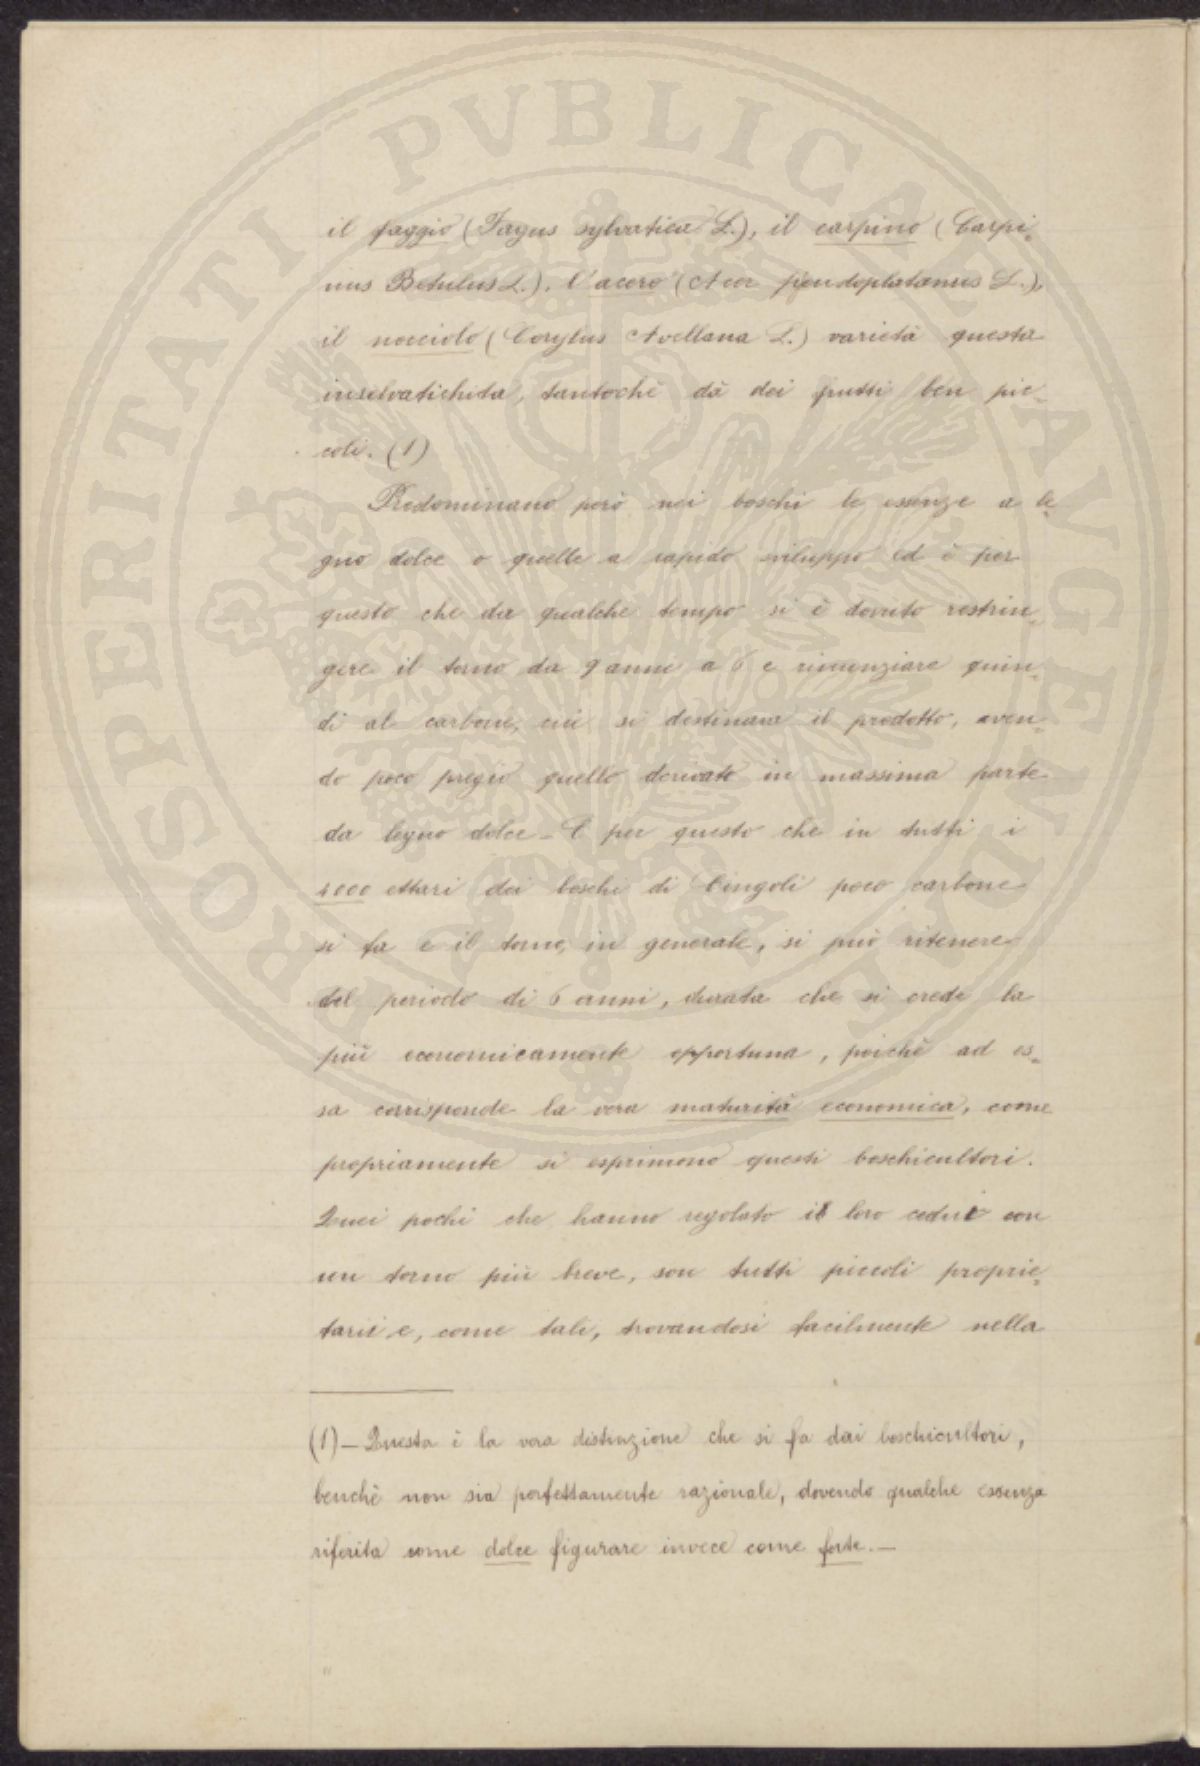 il faggio (Fagus sylvatica L.), il carpino (Carpi=
nus Betulus L.), l'acero (Acer pseudoplatanus L.),
il nocciolo (Corylus Avellana L.) varietà questa
inselvatichita, tantochè dà dei frutti ben pic=
coli. (1)
Predominano però nei boschi le essenze a le=
gno dolce o quelle a rapido sviluppo ed è per
questo che da qualche tempo si è dovuto restrin=
gere il torno da 9 anni a 6 e rinunziare quin=
di al carbone, cui si destinava il prodotto, aven=
do poco pregio quello derivato in massima parte
da legno dolce - È per questo che in tutti i
4000 ettari dei boschi di Cingoli poco carbone
si fa e il torno, in generale, si può ritenere
del periodo di 6 anni, durata che si crede la
più economicamente opportuna, poichè ad es=
sa corrisponde la vera maturità economica, come
propriamente si esprimono questi boschicultori.
Quei pochi che hanno regolato i loro cedui con
un torno più breve, son tutti piccoli proprie=
tarii e, come tali, trovandosi facilmente nella
(1) - Questa è la vera distinzione che si fa dai boschicultori,
benchè non sia perfettamente razionale, dovendo qualche essenza
riferita come dolce figurare invece come forte. -
PROSPERITATI PVBLICAE AVGENDAE